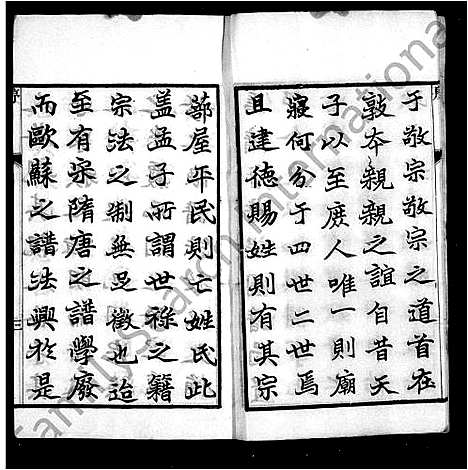 于敬宗敬宗之道首在
敦本親親之誼自昔天
子以至庶人唯一則廟
寢何分于四世二世焉
且建德賜姓則有其宗
蔀屋年民則亡姓氏此
盖孟子所謂世祿之籍
宗法之制無足徵也迨
至有宋隋唐之譜學廢
而歐蘇之譜法興於是
序
三
FamilySearch International